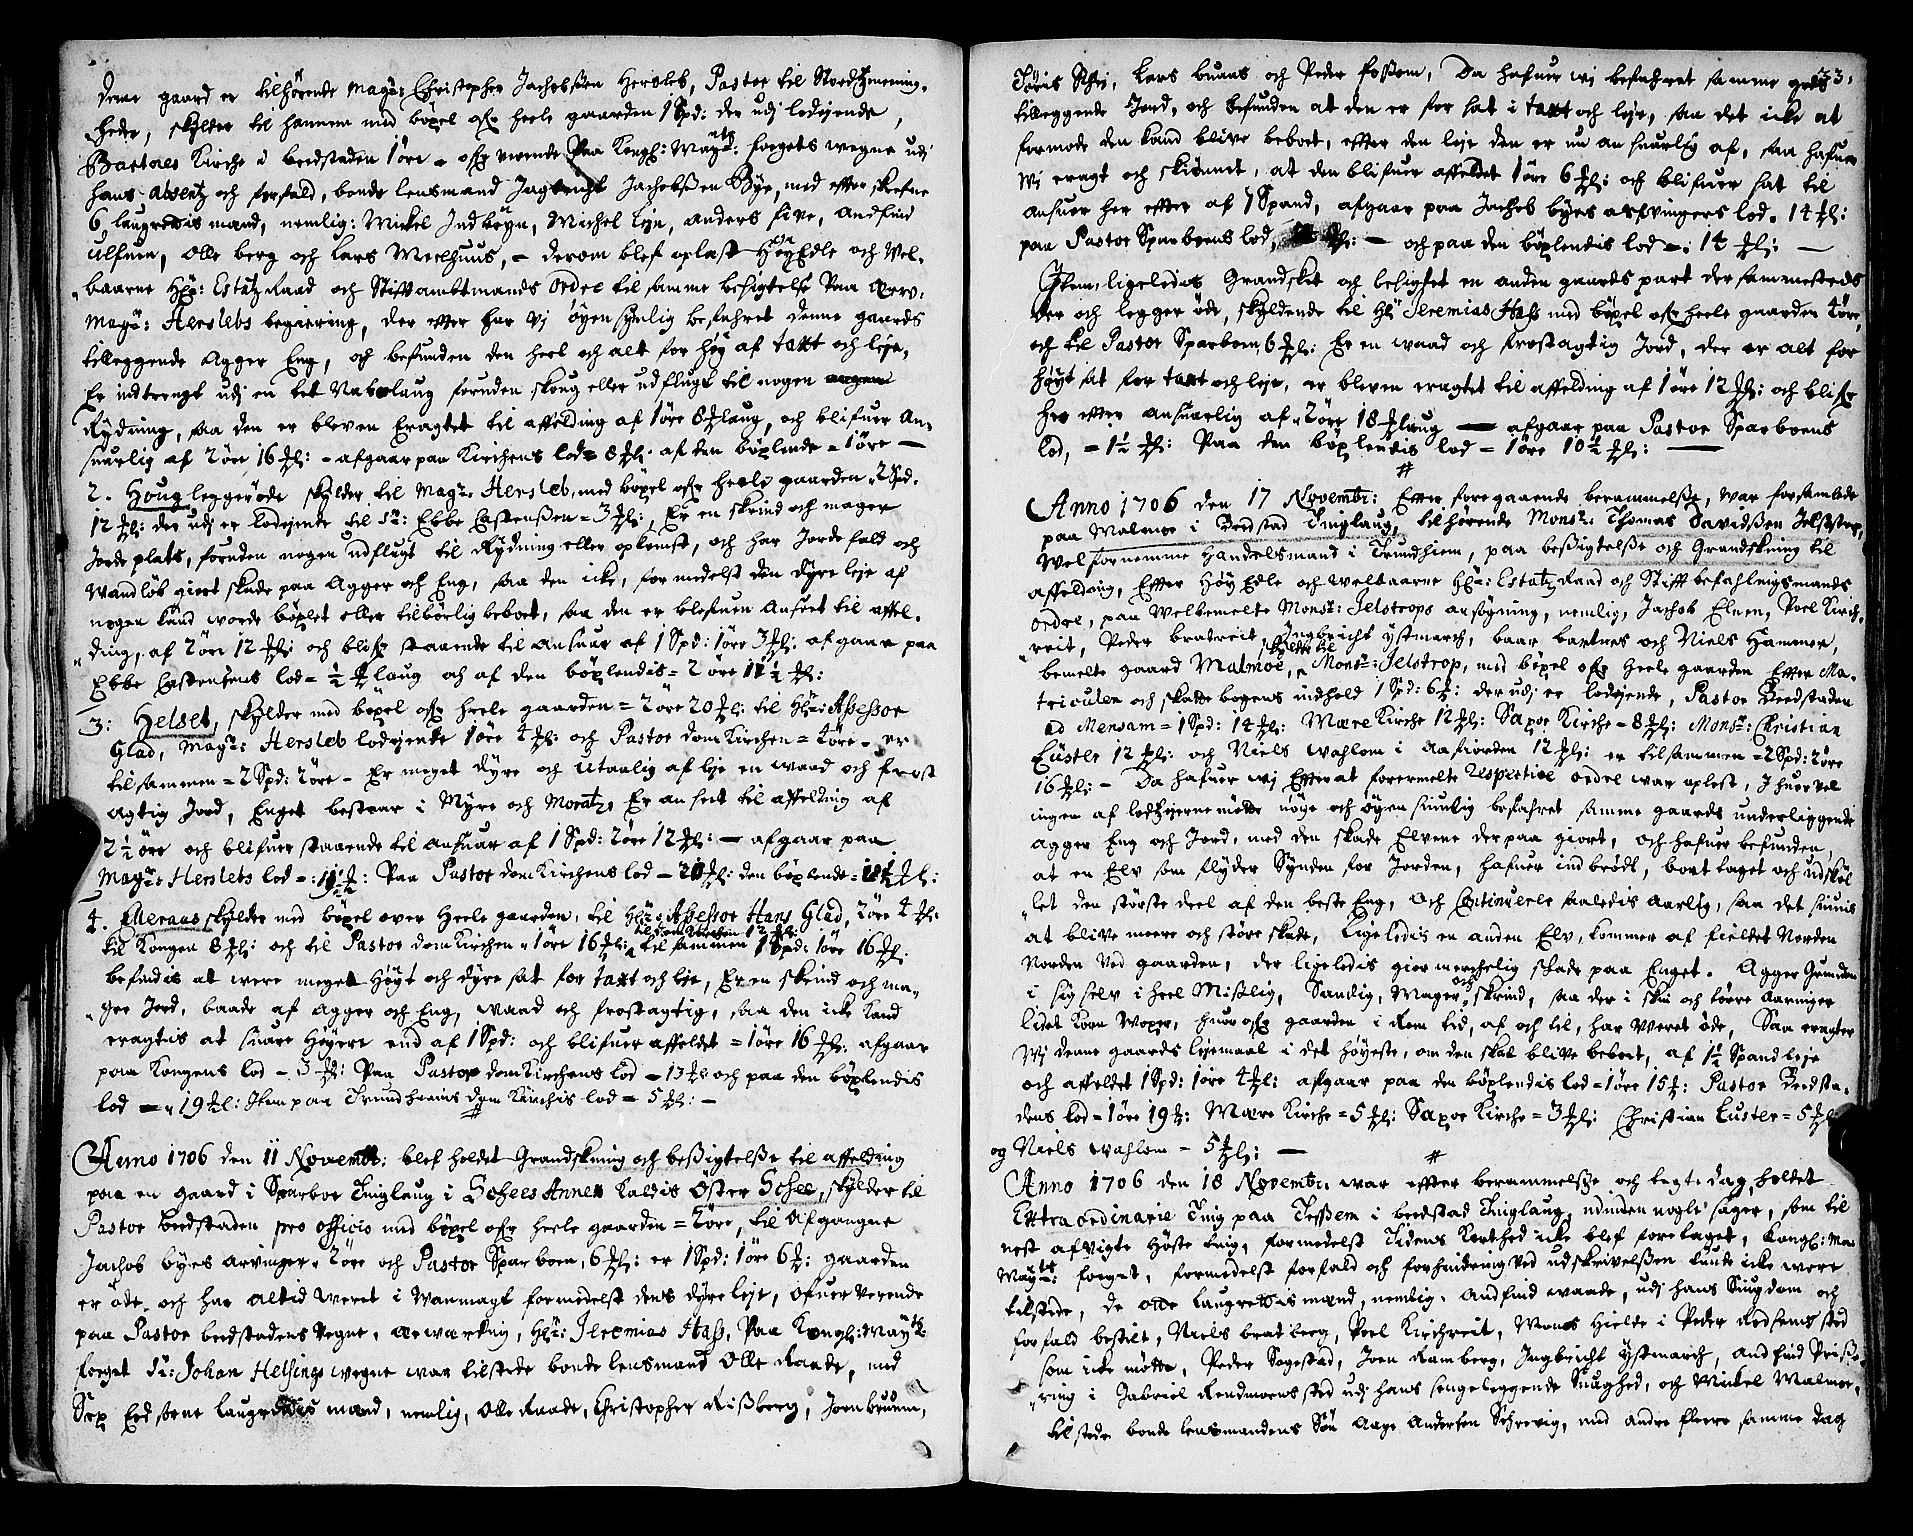 denne gaard er tilhørende Magr: Christopher Jachobsøn Hersleb, Pastor til Stordøens menig-
heder, skylder til hannem med böxel ofr heele gaarden 1 Spd: der udj lodejende,
Bartnes Kirche i beedstaden 1 öre - ofr werende Paa Kongl: Mayts: fogets wegne udj
hans absentz och forfald, bonde lensmand Ingbricht Jachobsøn Bye, med effter skrefne
6 laugrettis mænd, nemlig: Mickel Indbryn, Michel Leyn, Anders five, Andfind
Ulfuen, Olle berg och Lars Meelhuus, - derom blef oplæst HøyEdle och Vel-
baarne Hr: Estatz Raad och Stifftambtmands Ordre til samme besigtelse Paa Ærv:
Magr: Herslebs begiæring, der effter har vj øyensynlig befahret denne gaards
tilleggende Agger Eng, och befunden den heel och alt for høy af taxt och leje,
Er indtrengt udj en tet Nabolaug foruden skoug eller udflugt til nogen
Rydning, saa den er bleven Eragtet til affelding af 1 öre 8 ₰laug, och blifuer An-
suarlig af 2 öre 16 ₰l: - afgaar paa Kirchens lod = 8 ₰l: af den böxlende = 1 öre -
2. Houg legger øde skylder til Magr: Hersleb, med böxel ofr heele gaarden 2 Spd:
12 ₰l: der udj er lodejende til Sr: Ebbe Castensøn = 3 ₰l: Er en skrind och mager
Jorde plats, foruden nogen udflugt til Rydning eller opkomst, och har Jordefald och
Wandløb giort skade paa Agger och Eng, saa den icke, formedelst den dyre leje af
nogen kand worde böxlet eller tilbörlig beboet, saa den er blefuen Anseet til affel-
ding, af 2 öre 12 ₰l: och blifr staaende til ansuar af 1 Spd: 1 öre 3 ₰l: afgaar paa
Ebbe Castensens lod = ½ ₰laug och af den böxlendis = 2 öre 11½ ₰l:
3: Helset, skylder med böxel ofr heele gaarden = 2 öre 20 ₰l: til Hr: Assessor
Glad, Magr: Hersleb lodejende 1 öre 4 ₰l: och Pastor domKirchen = 4 öre - er
tilsammen = 2 Spd: 2 öre - Er meget dyre och Utaalig af leje en waad och frost
agtig Jord, Enget bestaar i Myre och Moratz, Er anseet til affelding af
2½ öre och blifuer staaende til ansuar af 1 Spd: 2 öre 12 ₰l: - afgaar paa
Magr: Herslebs lod - : Paa Pastor domKirchens lod - ₰l: den böxlende: ₰l:
4. Meraus skylder med böxel over Heele gaarden, til Hr: Assessor Hans Glad, 2 öre 4 ₰l:
til Kongen 8 ₰l: och til Pastor domKirchen = 1 öre 16 ₰l: til domKirchen 12 ₰l: til sammen 1 Spd: 1 öre 16 ₰l:
befindis at were meget Høyt och dyre sat for taxt och leje, Er en skrind och ma-
ger Jord, baade af Agger och Eng, waad och frostagtig, saa den icke Kand
eragtis at suare Høyere end af 1 Spd: och blifuer affeldet = 1 öre 16 ₰l: afgaar
paa Kongens lod - 3 ₰l: Paa Pastor domKirchens lod - 13 ₰l och paa den böxlendis
lod - 19 ₰l: Item paa Trundhiems dom Kirchis lod = 5 ₰l: -
Anno 1706 den 11 Novembr: blef holdet Grandskning och beßigtelße til affelding
paa en gaard i Sparboe Tinglaug i Schees Annex kaldis Öster Schee, skylder til
Pastor beedstaden pro officio med böxel ofr heele gaarden = 2 öre, til Afgangne
Jachob byes arvinger 2 öre och Pastor Sparboen, 6 ₰l: er 1 Spd: 1 öre 6 ₰: gaarden
er øde, och har altid weret i Wanmagt formedelst dens dyre leje, Ofuer verende
paa Pastor beedstadens vegne, ærwærdig, Hr: Jeremias Hass, Paa Kongl: Mayts:
foeget Sr: Johan Helsings wegne war tilstede bonde lensmand Olle Raade, med
Sex Eedsorne laugrettis mænd, nemlig, Olle Raade, Christopher Rißberg, Joen bruum,
33.
Töris Schej, Lars buaas och Peder fossem, Da hafuer wj befahret samme gaards
tilleggende Jord, och befunden at den er for hat i taxt och leje, saa det icke at
formode den kand blive beboet, effter den leje den er nu ansuarlig af, saa hafuer
Wj eragt och skiønnet, at den blifuer affeldet 1 öre 6 ₰l: och blifuer sat til
ansuar her effter af 1 Spand, afgaar paa Jachob byes arfvingers lod. 14 ₰l:
paa Pastor Sparboens lod, ₰l: - och paa den böxlendis lod - 14 ₰l: -
Item, ligeledis Grandsket och besigtet en anden gaards part der sammesteds
der och legger øde, skyldende til Hr: Jeremias Hass med böxel ofr heele gaarden 4 öre,
och til Pastor Sparboen, 6 ₰l: Er en waad och frostagtig Jord, der er alt for
høyt sat for taxt och leje, er bleven eragtet til affelding af 1 öre 12 ₰l: och blifr
her effter ansuarlig af 2 öre 18 ₰laug - afgaar paa Pastor Sparboens
lod, - 1½ ₰l: Paa den böxlendis lod = 1 öre 10½ ₰l: -
Anno 1706 den 17 Novembr: Effter foregaaende berammelße, war forsamlede
paa Malmoe i Beedstad Tinglaug, tilhørende Monsr: Thomas Davidßen Jelstrop,
Wel fornemme Handelsmand i Trundhiem, paa beßigtelße och Grandskning til
affelding, Effter Høy Edle och welbaarne Hr: Estatz Raad och Stifft befahlingsmands
Ordre, paa Welbemelte Monsr: Jelstrops ansøgning, nemlig, Jachob Elnen, Poel Kirch-
reit, Peder bratreit, Ingbricht Østmarch, baar bartnes och Niels Hammer,
bemelte gaard Malmoe, skylder til Monsr: Jelstrop, med böxel ofr heele gaarden Effter Ma-
triculen och skatte bogens indhold 1 Spd: 6 ₰: der udj er lodejende, Pastor Beedstaden
ad Mensam = 1 Spd: 14 ₰l: Mære Kirche 12 ₰l: Saxoe Kirche = 8 ₰l: Monsr: Christian
Luster 12 ₰l: och Niels wahlom i Aafiorden 12 ₰l: er tilsammen = 2 Spd: 2 öre
16 ₰l: - Da hafuer wj Effterat forermelte respective ordre war oplest, Jhuorvel
ingen af lodejerne mötte nöye och øyensiunlig befahret samme gaards underliggende
Agger Eng och Jord, med den skade Elvene derpaa giort, och hafuer befunden,
at en Elv som flyder Synden for Jorden, hafuer indbrødt, bort taget och udskøl-
let den største deel af den beste Eng, och Continuerer saaledis aarlig, saa det siunis
at blive meere och større skade, Ligeledis en anden Elv, kommer af fieldet Norden
Norden ved gaarden, der ligeledis giør merchelig skade paa Enget. Agger Grunden
i sig selv i heel Mislig, Sandig, Mager och skrind, saa der i skin och tørre Aaringer
lidet Korn Woxer, huorofr gaarden i lem tid, af och til, har weret øde, Saa eragter
Wj denne gaards lejemaal i det høyeste, om den skal blive beboet, af 1½ Spand leje
och affeldet 1 Spd: 1 öre 4 ₰l: afgaar paa den böxlendis lod = 1 öre 15 ₰: Pastor Beedsta-
dens lod = 1 öre 19 ₰: Mære Kirche = 5 ₰l: Saxoe Kirche = 3 ₰l: Christian Luster = 5 ₰l
og Niels wahlom - 5 ₰l: -
Anno 1706 den 18 Novembr. war effter berammelße och lagte dag, holdet
Extraordinarie Ting paa Tessem i beedstad Tinglaug, udinden nogle sager, som til
nest afvigte Höste ting, formedelst Tidens Korthed icke blef foretaget, Kongl: Ma
Mayts: foeget, formedelst forfald och forhindring ved udskrivelßen kunde icke were
tilstede, de otte laugrettis mænd, nemlig, Andfind waade, udj hans Siugdom och
forfald bestilt, Niels bratberg, Poel Kirchreit, Mons Hielde i Peder Rodsems sted
som icke mötte, Peder Sogestad, Joen Ramberg, Ingbricht Østmarch, andfind Priße-
ring i Gabriel Rendmoens sted udj hans sengeleggende Suaghed, och Mickel Malmoe,
tilstede bonde lensmandens Søn Aage Andersen Schrevig, med andre fleere samme dag